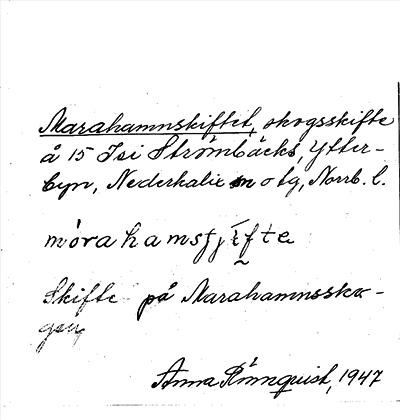 Marahamnskiftet, skogsskifte
å 15 Isi Strömbäcks, Ytter-
byn, Nederkalix sn o tg, Norrb. l.
mòrahamsʃjífte
Skifte på Marahamnssko-
gen
Anna Rönnquist, 1947